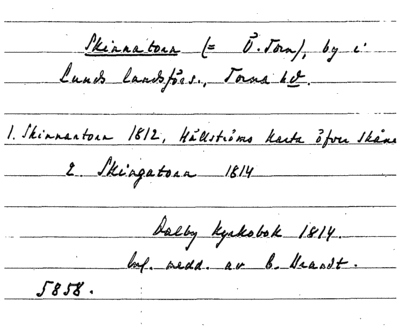 Skinnatorn (= Ö. Torn), by i
Lunds landsförs., Torna hd.
1. Skinnartorn 1812, Hällströms Karta öfver Skåne
2. Skingatorn 1814
Dalby Kyrkobok 1814.
Inf. medd. av C. Brandt.
5858.